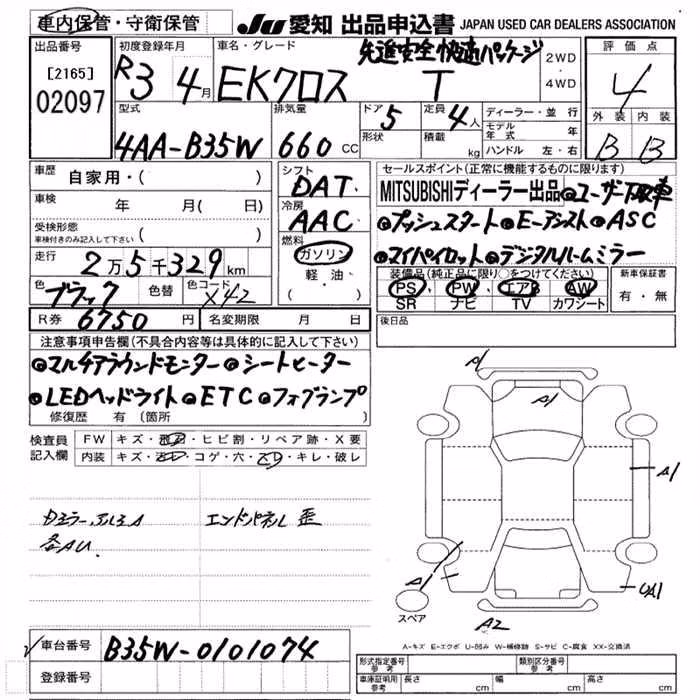 車内保管・守衛保管
JU 愛知 出品申込書 JAPAN USED CAR DEALERS ASSOCIATION
出品番号
[2165]
02097
初度登録年月
R3 4月
車名・グレード
先進安全快適パッケージ
EKクロス T
2WD
・
4WD
評価点
4
外装 内装
B B
型式
4AA-B35W
排気量
660 CC
ドア 5
形状
定員 4人
積載 kg
ディーラー・並行
モデル年式 年
ハンドル 左・右
車歴 自家用・( )
車検 年 月( 日)
受検形態
車検付きのみ記入して下さい ( )
走行 2万5千329km
色 ブラック
色替
色コード X42
R券 6750円
名変期限 月 日
シフト
DAT
冷房
AAC
燃料
ガソリン
軽油・
( )
セールスポイント(正常に機能するものに限ります)
MITSUBISHIディーラー出品 ●ユーザー下取車
●プッシュスタート●Eーアシスト●ASC
●マイパイロット●デジタルルームミラー
装備品(純正品に限り○をつけてください)
PS PW エアB AW
SR ナビ TV カワシート
新車保証書
有・無
後日品
注意事項申告欄(不具合内容等は具体的に記入して下さい)
●マルチアラウンドモニター●シートヒーター
●LEDヘッドライト●ETC●フォグランプ
修復歴 有(箇所 )
検査員記入欄
FW キズ・飛石・ヒビ割・リペア跡・X要
内装 キズ・ヨゴレ・コゲ・穴・スレ・キレ・破レ
各AU
エンドパネル歪
A1
A1
A1
A1
UA1
A2
スペア
A-キズ E-エクボ U-凹み W-補修跡 S-サビ C-腐食 XX-交換済
車台番号 B35W-0101074
登録番号
形式指定番号 参考
類別区分番号 参考
車庫証明用 参考 長さ cm 幅 cm 高さ cm